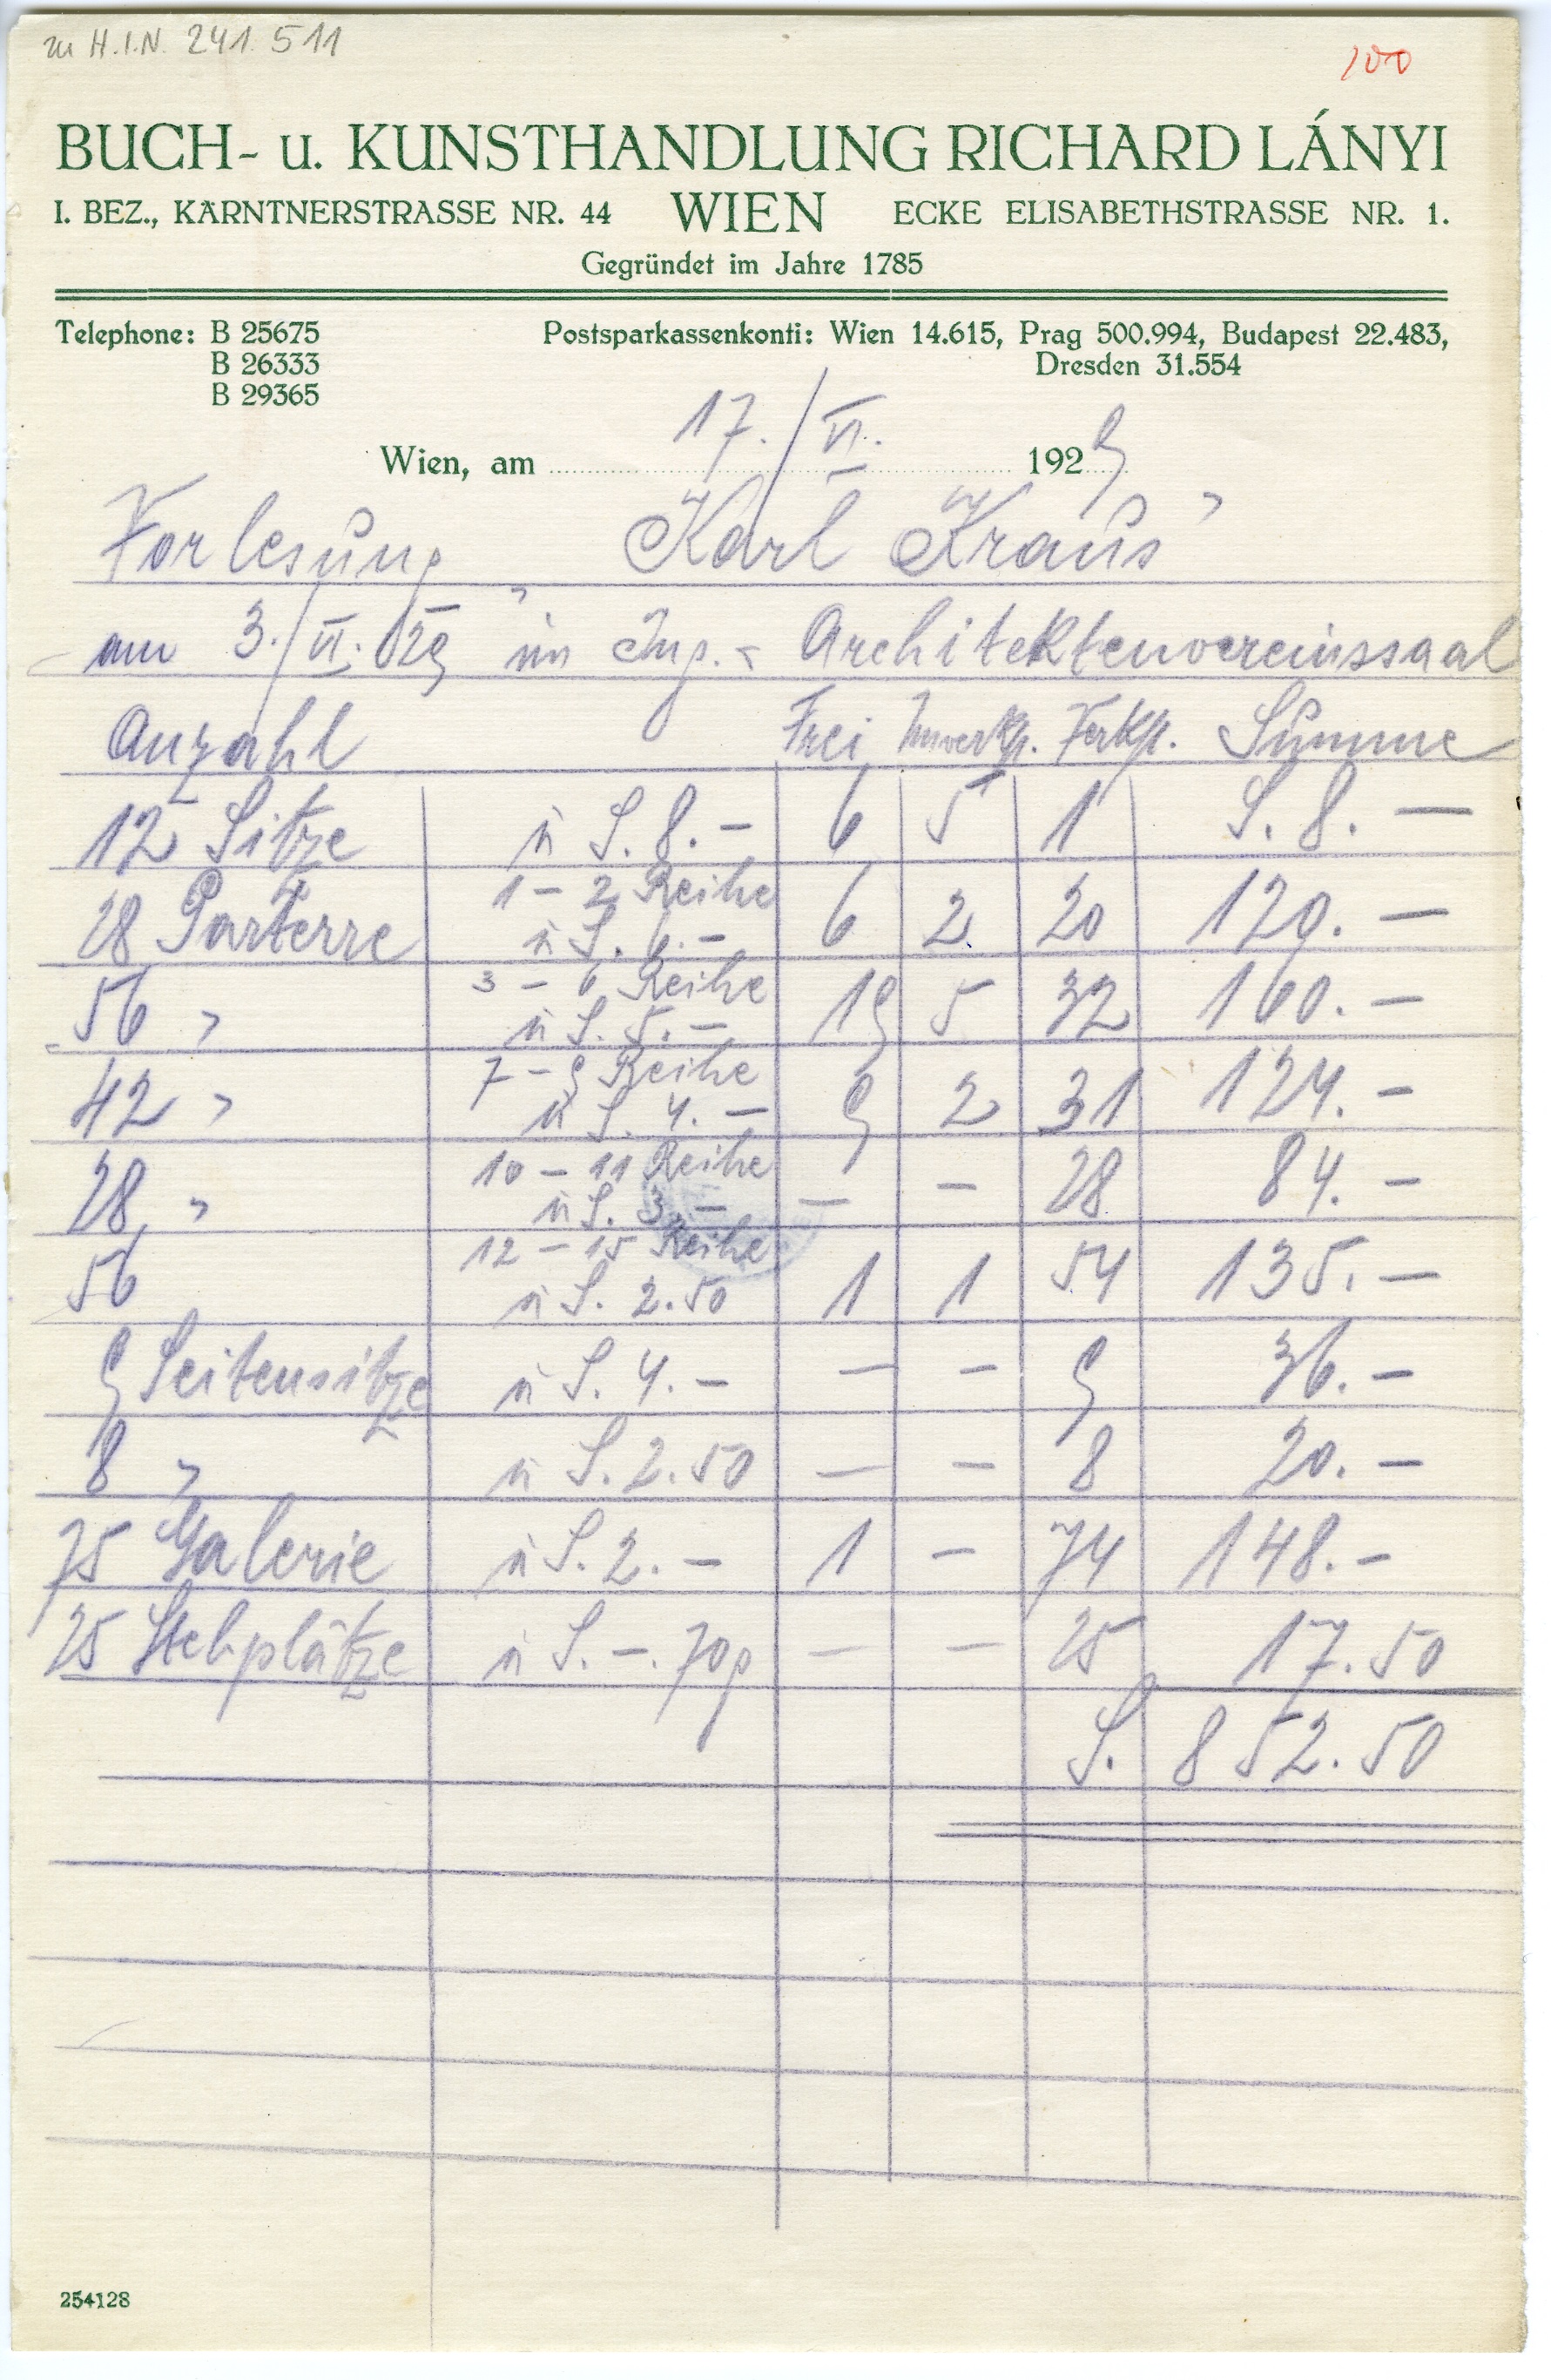 zu H.I.N. 241.511
100
BUCH- u. KUNSTHANDLUNG RICHARD LÁNYI
I. BEZ., KÄRNTNERSTRASSE NR. 44 WIEN ECKE ELISABETHSTRASSE NR. 1.
Gegründet im Jahre 1785
Telephone: B 25675 Postsparkassenkonti: Wien 14.615, Prag 500.994, Budapest 22.483,
B 26333 Dresden 31.554
B 29365
Wien, am 17./VI. 1929
Vorlesung Karl Kraus
am 3./VI. 029 im Ing.- Architektenvereinssaal
Anzahl Frei Unverkf. Verkf. Summe
12 Sitze à S. 8.– 6 5 1 S. 8.–
1 – 2 Reihe
28 Parterre à S. 6.– 6 2 20 120.–
3 – 6 Reihe
56 " à S. 5.– 19 5 32 160.–
7 – 9 Reihe
42 " à S. 4.– 9 2 31 124.–
10 – 11 Reihe
28 " à S. 3.– – – 28 84.–
12 – 15 Reihe
56 à S. 2.50 1 1 54 135.–
9 Seitensitze à S. 4.– – – 9 36.–
8 " à S. 2.50 – – 8 20.–
75 Galerie à S. 2.– 1 – 74 148.–
25 Stehplätze à S. –.70g – – 25 17.50
S. 852.50
254128